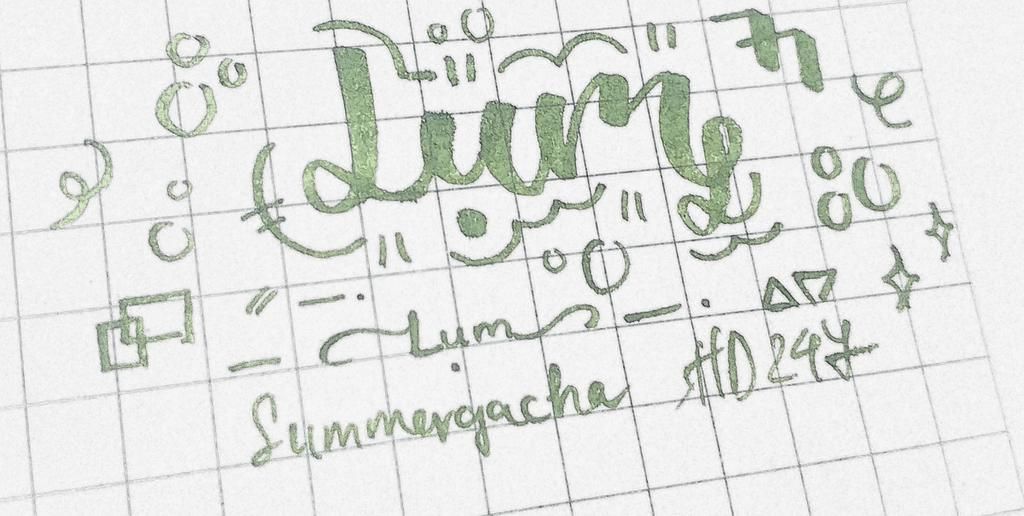 Lum
Lum
Summergacha HD247